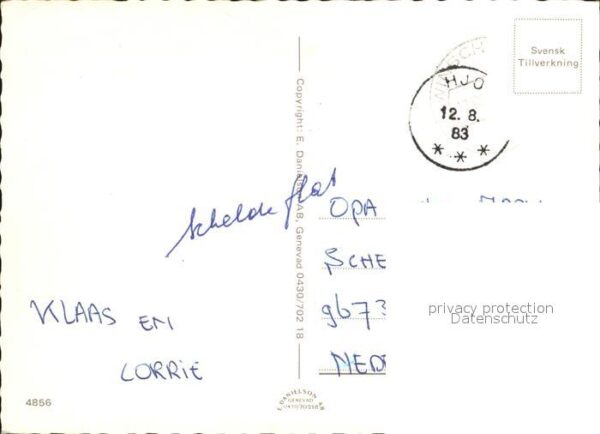 Svensk
Tillverkning
HJO
12. 8.
83
* * *
Copyright: E. Danielson AB, Genevad 0430/702 18
Schelde flat
OPA
SCHE
9673
NED
KLAAS EN
LORRIE
privacy protection
Datenschutz
4856
E. DANIELSON AB
GENEVAD
0430/70218